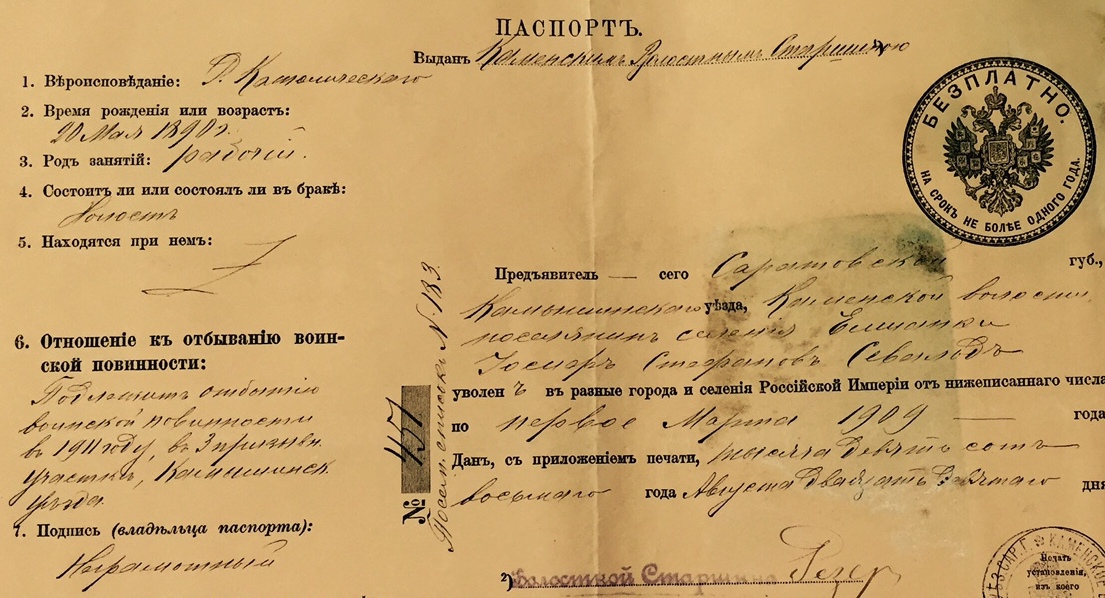 ПАСПОРТЪ.
Выданъ Каменскимъ Волостнымъ Старшиною
1. Вѣроисповѣданіе: Р. Католическаго
2. Время рожденія или возрастъ:
20 Мая 1890 г.
3. Родъ занятій: рабочій.
4. Состоитъ ли или состоялъ ли въ бракѣ:
Холостъ
5. Находятся при немъ:
6. Отношеніе къ отбыванію воин-
ской повинности:
Подлежитъ отбытію
воинской повинности
въ 1911 году, въ 3 призывн.
участкѣ, Камышинск.
уѣзда.
7. Подпись (владѣльца паспорта):
Неграмотный
БЕЗПЛАТНО.
НА СРОКЪ НЕ БОЛѢЕ ОДНОГО ГОДА.
№ 457
Посем. списокъ № 183.
Предъявитель — сего Саратовской губ.,
Камышинскаго уѣзда, Каменской волости,
поселянинъ селенія
Стефановъ
уволенъ въ разные города и селенія Россійской Имперіи отъ нижеписаннаго числа
по первое Марта 1909 — года
Данъ, съ приложеніемъ печати, тысяча девятьсотъ
восьмаго года Августа двадцать девятаго дня
2) Волостной Старшина
УѢЗ. САР. Г. КАМЕНСКОЕ
Печать
установленія,
изъ коего